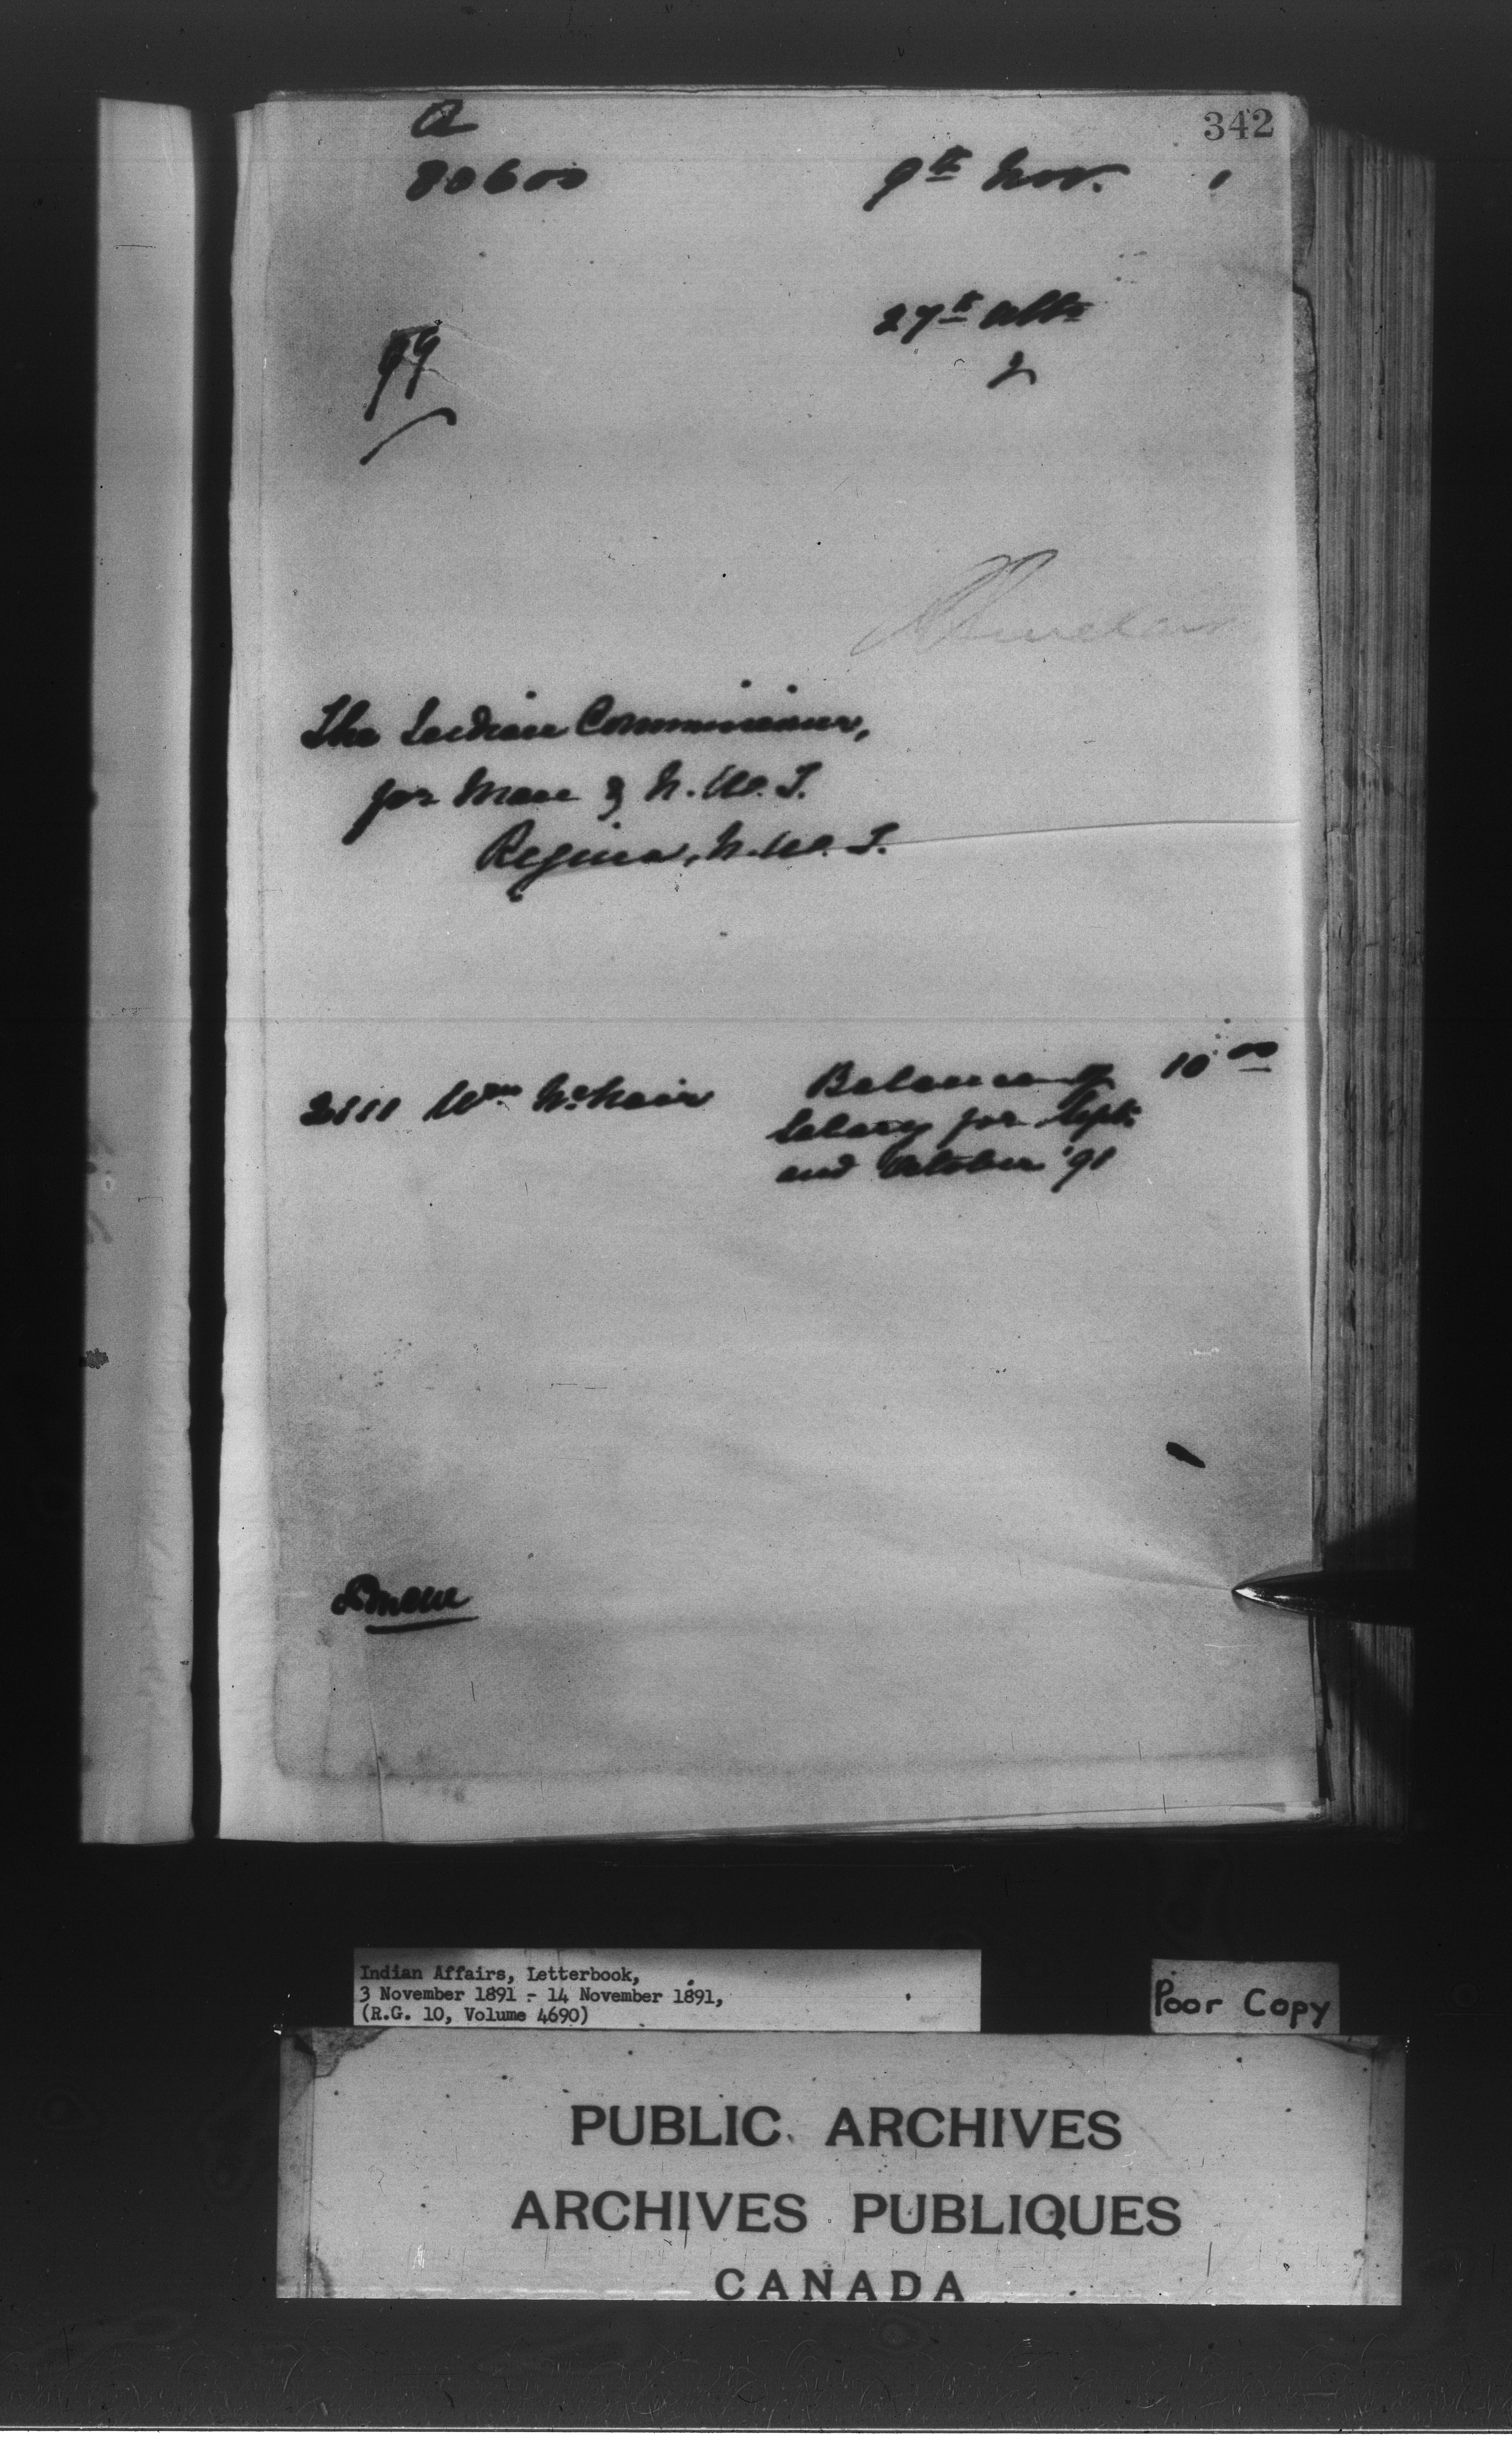 342
A
80600
9th Nov. 1
99
27th ulto
2
The Indian Commissioner,
for Man & N.W.T.
Regina, N.W.T.
2111 Wm McNair Balance of 10 00
Salary for Sept.
and October '91
Indian Affairs, Letterbook,
3 November 1891 - 14 November 1891,
(R.G. 10, Volume 4690)
Poor Copy
PUBLIC ARCHIVES
ARCHIVES PUBLIQUES
CANADA